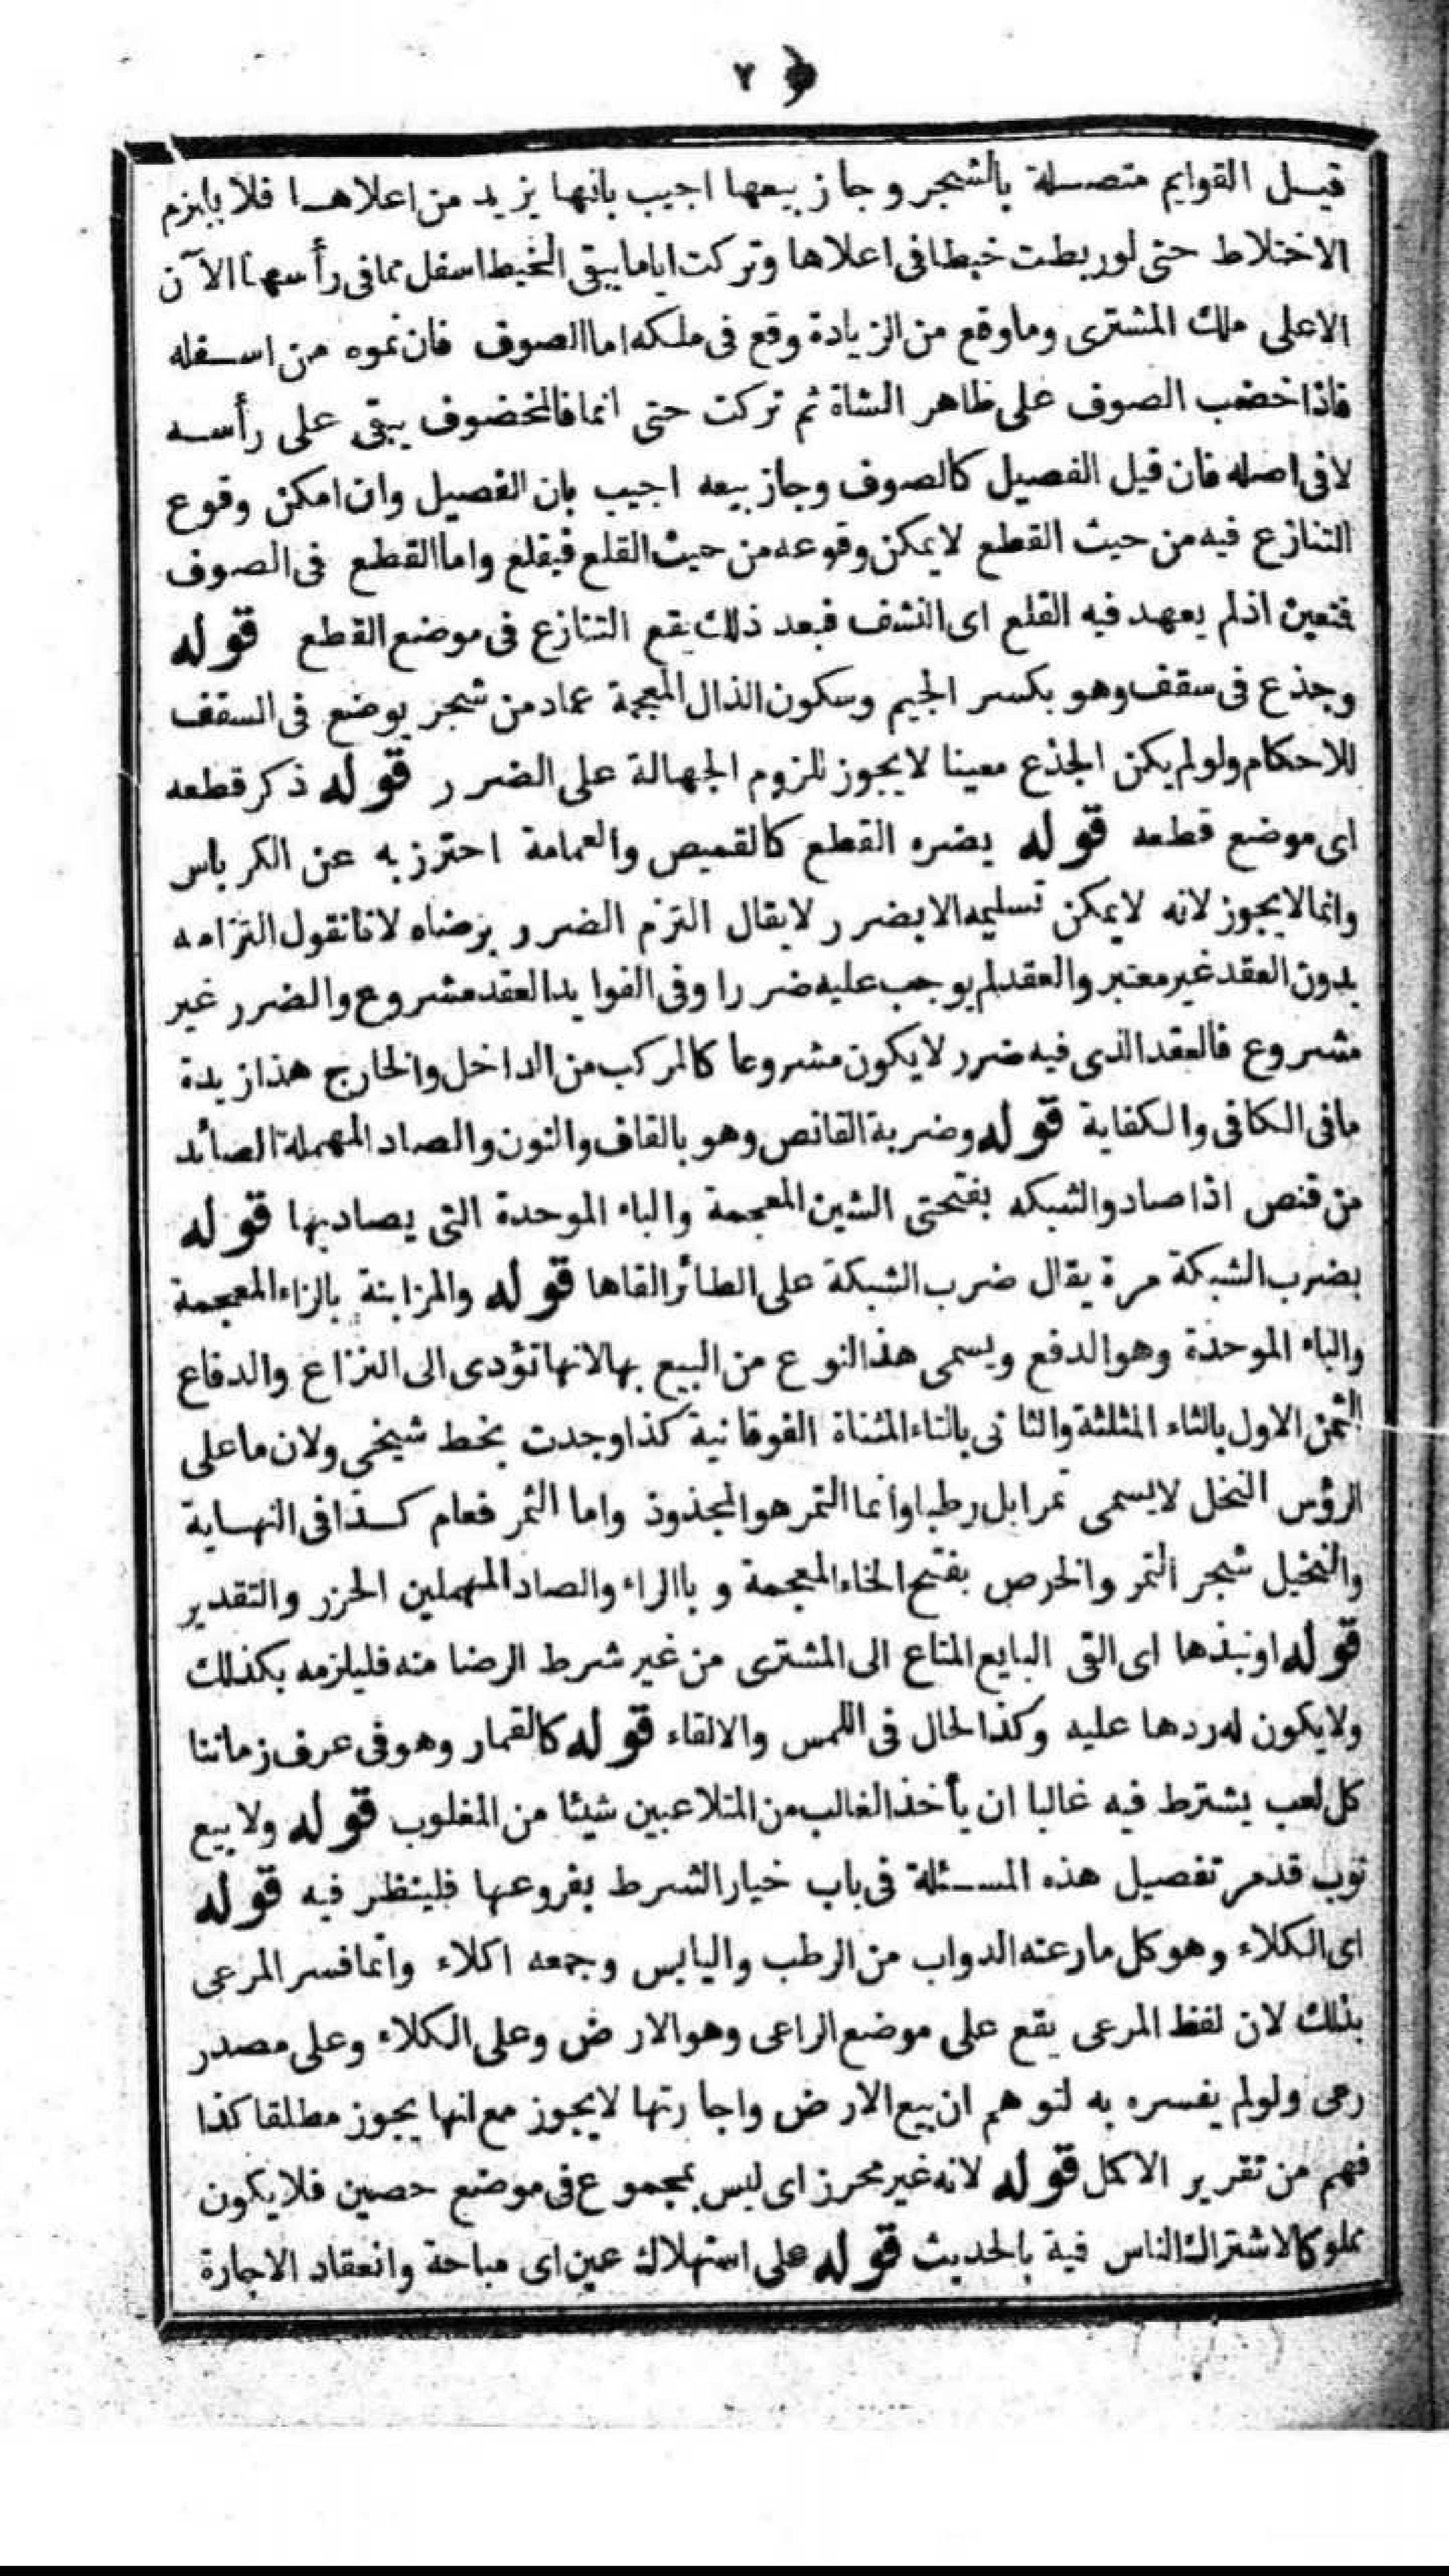 ﴿ ٢
قيل القوايم متصلة بالشجر وجاز بيعها اجيب بانها يزيد من اعلاها فلا يلزم
الاختلاط حتى لو ربطت خيطا فى اعلاها وتركت اياما يبقى الخيط اسفل مما فى رأسها الآن
الاعلى ملك المشترى وما وقع من الزيادة وقع فى ملكه اما الصوف فان نموه من اسفله
فاذا خضب الصوف على ظاهر الشاة ثم تركت حتى انما فالمخضوف يبقى على رأسه
لا فى اصله فان قيل الفصيل كالصوف وجاز بيعه اجيب بان الفصيل وان امكن وقوع
التنازع فيه من حيث القطع لا يمكن وقوعه من حيث القلع فيقلع واما القطع فى الصوف
فتعين اذ لم يعهد فيه القلع اى النتف فبعد ذلك يقع التنازع فى موضع القطع قوله
وجذع فى سقف وهو بكسر الجيم وسكون الذال المعجمة عماد من شجر يوضع فى السقف
للاحكام ولو لم يكن الجذع معينا لا يجوز للزوم الجهالة على الضرر قوله ذكر قطعه
اى موضع قطعه قوله يضره القطع كالقميص والعمامة احترز به عن الكرباس
وانما لا يجوز لانه لا يمكن تسليمه الا بضرر لا يقال التزم الضرر برضاه لانا نقول التزامه
بدون العقد غير معتبر والعقد لم يوجب عليه ضررا وفى الفوايد العقد مشروع والضرر غير
مشروع فالعقد الذى فيه ضرر لا يكون مشروعا كالمركب من الداخل والخارج هذا زبدة
ما فى الكافى والكفاية قوله وضربة القانص وهو بالقاف والنون والصاد المهملة الصائد
من قنص اذا صاد والشبكه بفتحتى الشين المعجمة والباء الموحدة التى يصاد بها قوله
بضرب الشبكة مرة يقال ضرب الشبكة على الطائر القاها قوله والمزابنة بالزاء المعجمة
والباء الموحدة وهو الدفع ويسمى هذا النوع من البيع بها لانها تؤدى الى النزاع والدفاع
الثمن الاول بالثاء المثلثة والثانى بالتاء المثناة الفوقانية كذا وجدت بخط شيخى ولان ما على
الرؤس النخل لا يسمى تمرا بل رطبا وانما التمر هو المجذوذ واما الثمر فعام كذا فى النهاية
والنخيل شجر التمر والخرص بفتح الخاء المعجمة وبالراء والصاد المهملين الحزر والتقدير
قوله او نبذها اى القى البايع المتاع الى المشترى من غير شرط الرضا منه فليلزمه بكذلك
ولا يكون له ردها عليه وكذا الحال فى اللمس والالقاء قوله كالقمار وهو فى عرف زماننا
كل لعب يشترط فيه غالبا ان يأخذ الغالب من المتلاعبين شيئا من المغلوب قوله ولا بيع
ثوب قد مر تفصيل هذه المسئلة فى باب خيار الشرط بفروعها فلينظر فيه قوله
اى الكلاء وهو كل ما رعته الدواب من الرطب واليابس وجمعه اكلاء وانما فسر المرعى
بذلك لان لفظ المرعى يقع على موضع الراعى وهو الارض وعلى الكلاء وعلى مصدر
رعى ولو لم يفسره به لتوهم ان بيع الارض واجارتها لا يجوز مع انها يجوز مطلقا كذا
فهم من تقرير الاكمل قوله لانه غير محرز اى ليس بمجموع فى موضع حصين فلا يكون
مملوكا لاشتراك الناس فية بالحديث قوله على استهلاك عين اى مباحة وانعقاد الاجارة